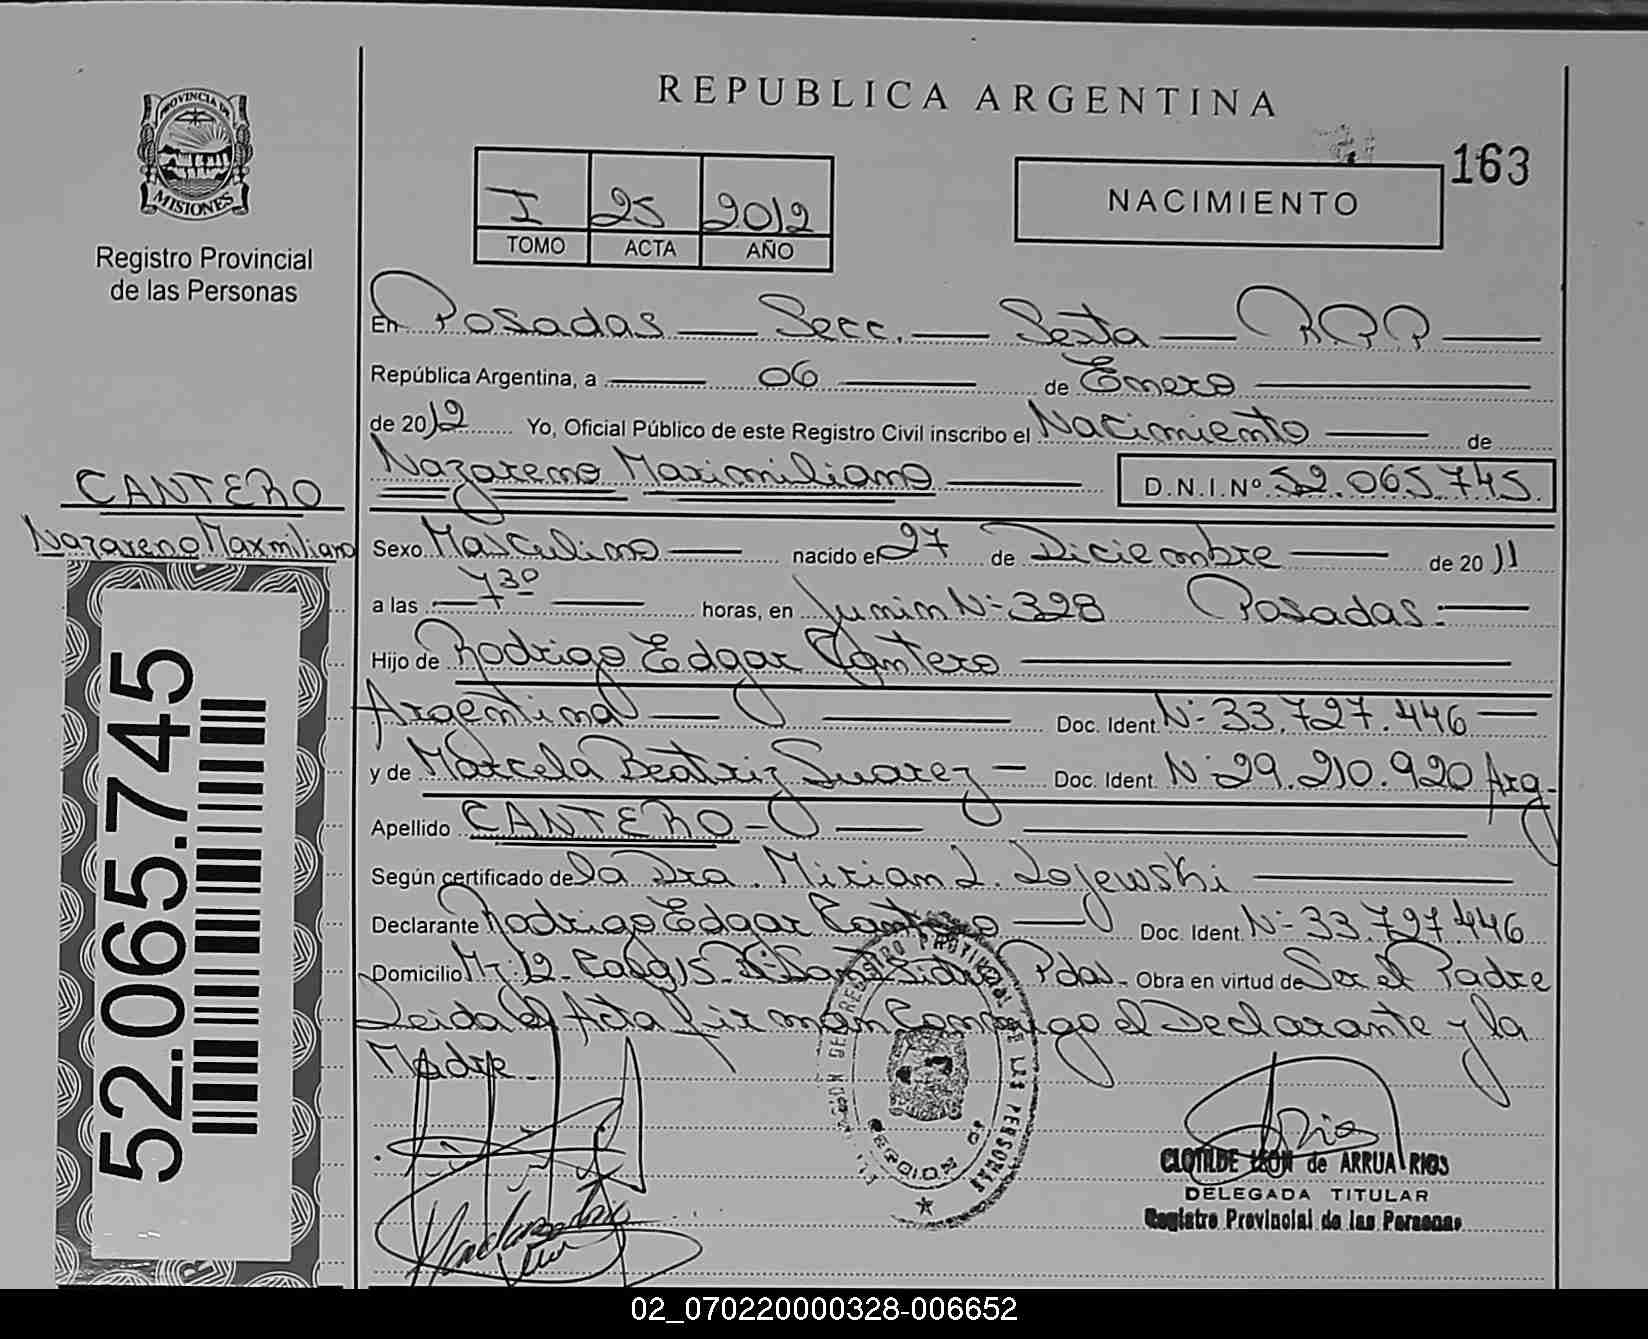 REPUBLICA ARGENTINA
PROVINCIA DE
MISIONES
Registro Provincial
de las Personas
I 25 2012
TOMO ACTA AÑO
NACIMIENTO
163
En Posadas — Secc. — Sexta — RPP —
República Argentina, a — 06 — de Enero —
de 2012 Yo, Oficial Público de este Registro Civil inscribo el Nacimiento — de
Nazareno Maximiliano — D.N.I.Nº 52.065.745.
CANTERO
Nazareno Maxmiliano
Sexo Masculino — nacido el 27 de Diciembre — de 2011
a las — 7 30 — horas, en Junin Nº 328 Posadas. —
Hijo de Rodrigo Edgar Cantero —
Argentina — Doc. Ident. Nº 33.727.446 —
y de Marcela Beatriz Suarez — Doc. Ident. Nº 29.210.920 Arg-
Apellido CANTERO - —
Según certificado de la Dra. Mirian L. Lojewski —
Declarante Rodrigo Edgar Cantero — Doc. Ident. Nº 33.727.446
Domicilio Mz 12 - Casa 15 - Bº San Isidro Pdas. - Obra en virtud de Ser el Padre
Leida el Acta firman Conmigo el Declarante y la
Madre.
52.065.745
REGISTRO PROVINCIAL DE LAS PERSONAS
CLOTILDE LEON de ARRUA RIOS
DELEGADA TITULAR
Registro Provincial de las Personas
02_070220000328-006652